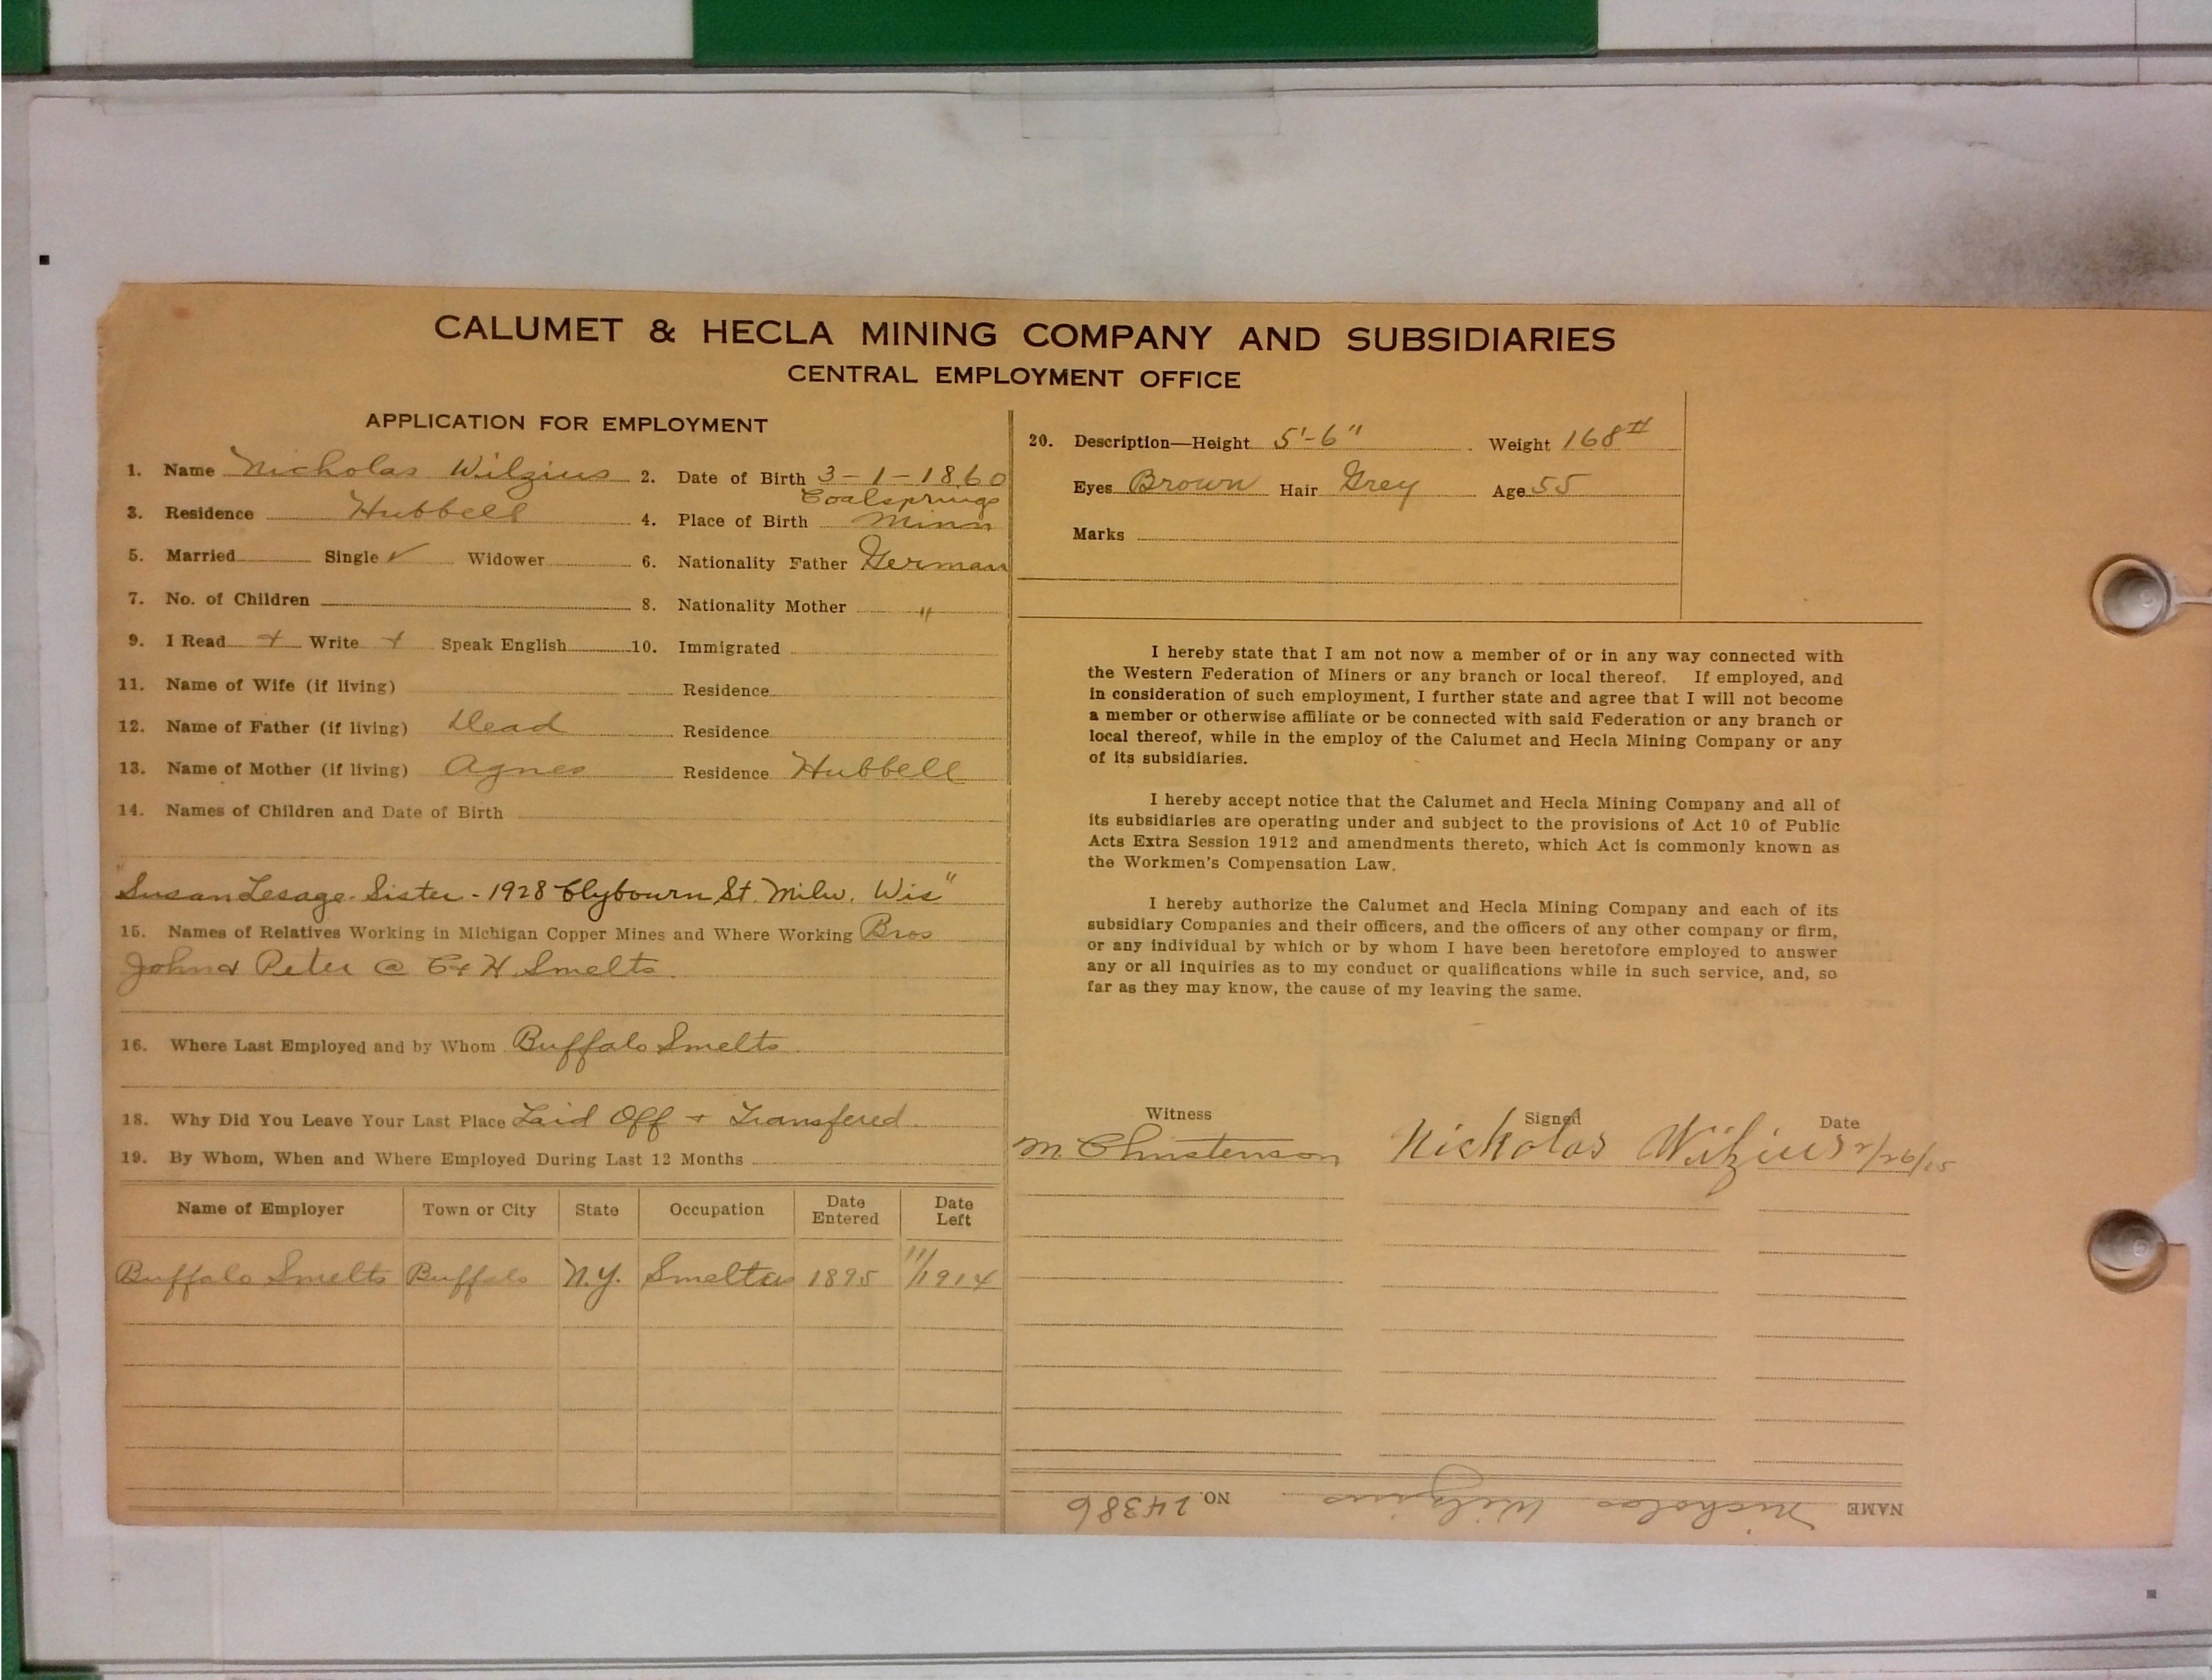 CALUMET & HECLA MINING COMPANY AND SUBSIDIARIES
CENTRAL EMPLOYMENT OFFICE
APPLICATION FOR EMPLOYMENT
1. Name Nicholas Wilzius 2. Date of Birth 3-1-1860
3. Residence Hubbell 4. Place of Birth Coalsprings Minn
5. Married Single ✓ Widower 6. Nationality Father German
7. No. of Children 8. Nationality Mother "
9. I Read + Write + Speak English 10. Immigrated
11. Name of Wife (if living) Residence
12. Name of Father (if living) Dead Residence
13. Name of Mother (if living) Agnes Residence Hubbell
14. Names of Children and Date of Birth
"Susan Lesage. Sister - 1928 Clybourn St. Milw. Wis"
15. Names of Relatives Working in Michigan Copper Mines and Where Working Bros
John & Peter @ C & H Smelts.
16. Where Last Employed and by Whom Buffalo Smelts.
18. Why Did You Leave Your Last Place Laid Off + Transfered
19. By Whom, When and Where Employed During Last 12 Months
Name of Employer Town or City State Occupation Date Entered Date Left
Buffalo Smelts Buffalo N.Y. Smelter 1895 11/1914
20. Description—Height 5'-6" Weight 168#
Eyes Brown Hair Grey Age 55
Marks
I hereby state that I am not now a member of or in any way connected with
the Western Federation of Miners or any branch or local thereof. If employed, and
in consideration of such employment, I further state and agree that I will not become
a member or otherwise affiliate or be connected with said Federation or any branch or
local thereof, while in the employ of the Calumet and Hecla Mining Company or any
of its subsidiaries.
I hereby accept notice that the Calumet and Hecla Mining Company and all of
its subsidiaries are operating under and subject to the provisions of Act 10 of Public
Acts Extra Session 1912 and amendments thereto, which Act is commonly known as
the Workmen's Compensation Law.
I hereby authorize the Calumet and Hecla Mining Company and each of its
subsidiary Companies and their officers, and the officers of any other company or firm,
or any individual by which or by whom I have been heretofore employed to answer
any or all inquiries as to my conduct or qualifications while in such service, and, so
far as they may know, the cause of my leaving the same.
Witness Signed Date
M. Christenson Nickolas Wilzius /26/15
NAME Nicholas Wilzius NO. 24386